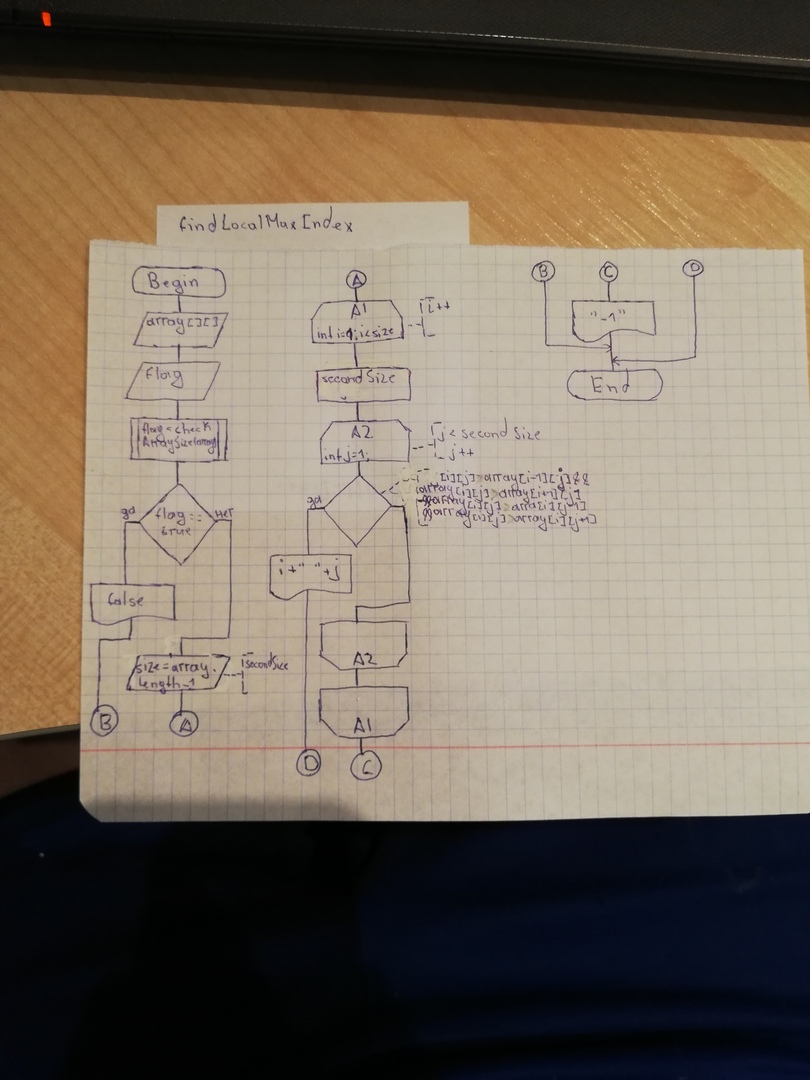 findLocalMaxIndex
Begin
array[][]
flag
flag = check
ArraySize(array)
да
flag ==
true
нет
false
size=array.
length-1
secondSize
B
A
A
A1
int i=1; i<size
i++
secondSize
A2
int j=1;
j < secondSize
j++
[i][j]>array[i-1][j]&&
array[i][j]>array[i+1][j]
&&array[i][j]>array[i][j-1]
&&array[i][j]>array[i][j+1]
да
i+" "+j
A2
A1
D
C
B
C
D
"-1"
End